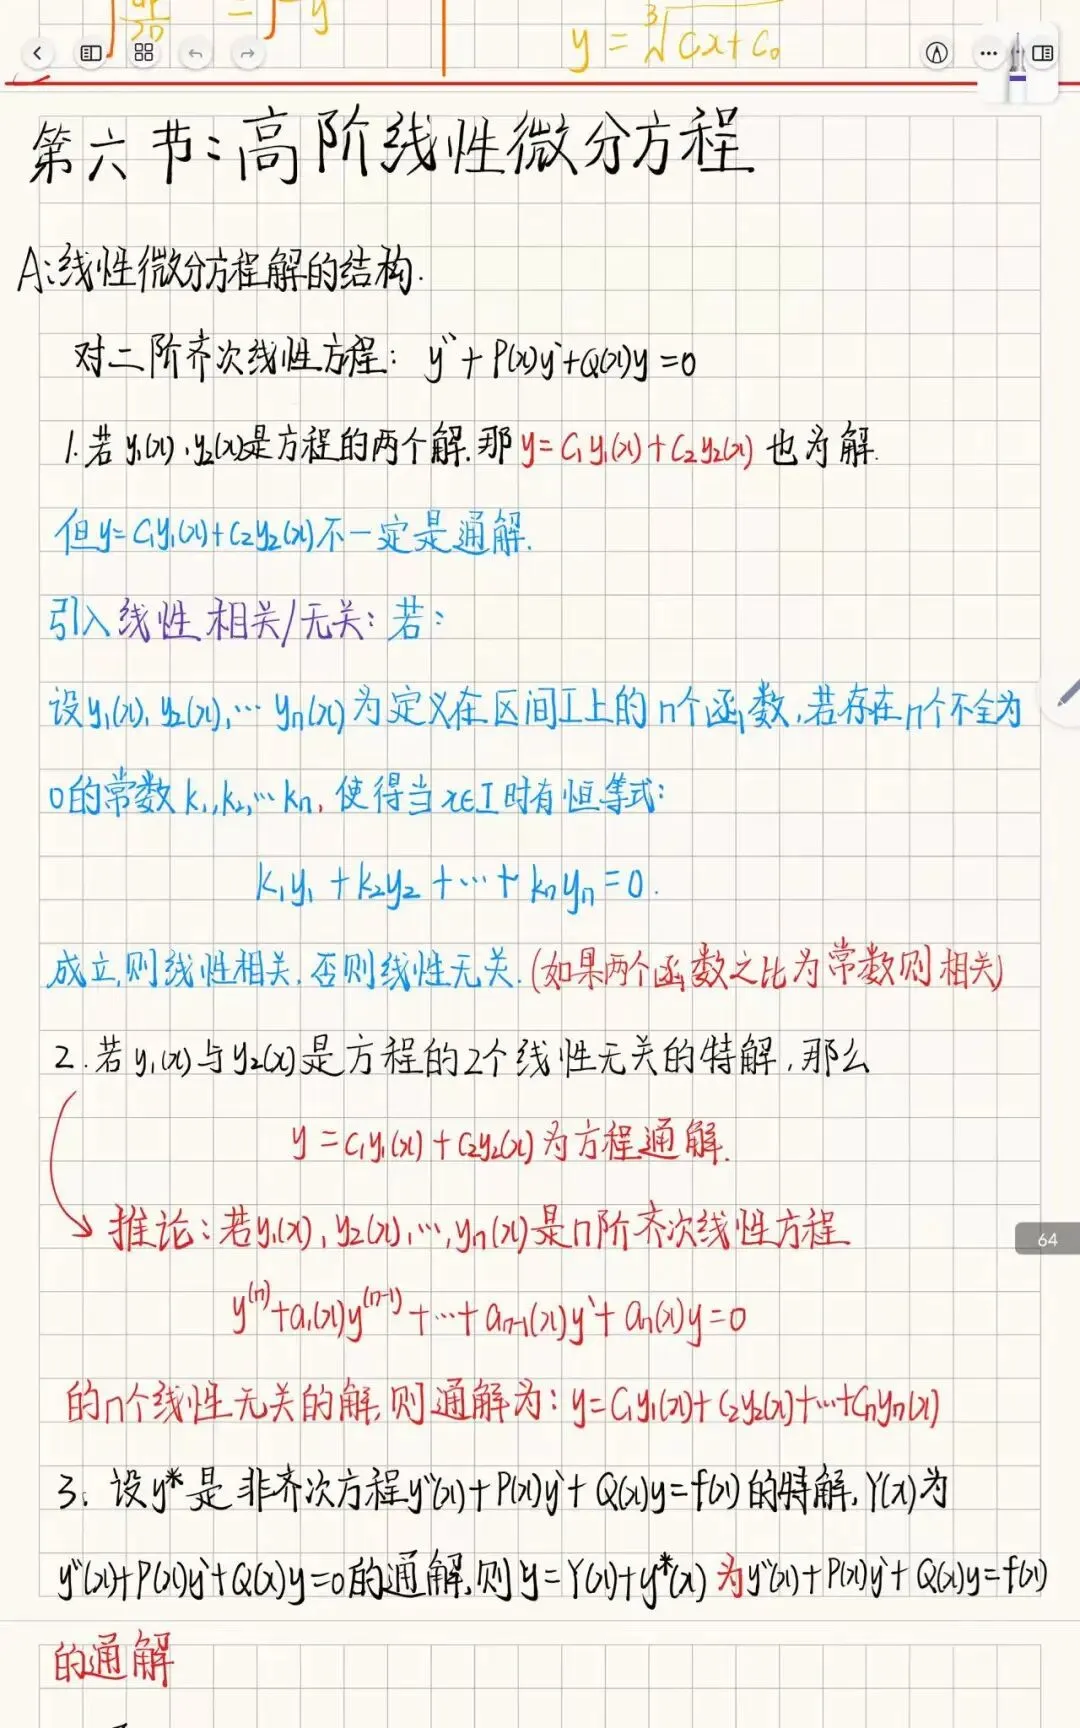 y = ∛(Cx+C₀)
第六节:高阶线性微分方程
A:线性微分方程解的结构.
对二阶齐次线性方程: y''+P(x)y'+Q(x)y=0
1.若y₁(x),y₂(x)是方程的两个解.那y=C₁y₁(x)+C₂y₂(x) 也为解.
但y=C₁y₁(x)+C₂y₂(x)不一定是通解.
引入线性相关/无关:若:
设y₁(x),y₂(x),…yn(x)为定义在区间I上的n个函数,若存在n个不全为
0的常数k₁,k₂,…kn,使得当x∈I时有恒等式:
k₁y₁+k₂y₂+…+knyn=0.
成立,则线性相关,否则线性无关.(如果两个函数之比为常数则相关)
2.若y₁(x)与y₂(x)是方程的2个线性无关的特解,那么
y=C₁y₁(x)+C₂y₂(x)为方程通解.
推论:若y₁(x),y₂(x),…,yn(x)是n阶齐次线性方程
y⁽ⁿ⁾+a₁(x)y⁽ⁿ⁻¹⁾+…+an-1(x)y'+an(x)y=0
的n个线性无关的解,则通解为:y=C₁y₁(x)+C₂y₂(x)+…+Cnyn(x)
64
3.设y*是非齐次方程y''(x)+P(x)y'+Q(x)y=f(x)的特解,Y(x)为
y''(x)+P(x)y'+Q(x)y=0的通解,则y=Y(x)+y*(x)为y''(x)+P(x)y'+Q(x)y=f(x)
的通解